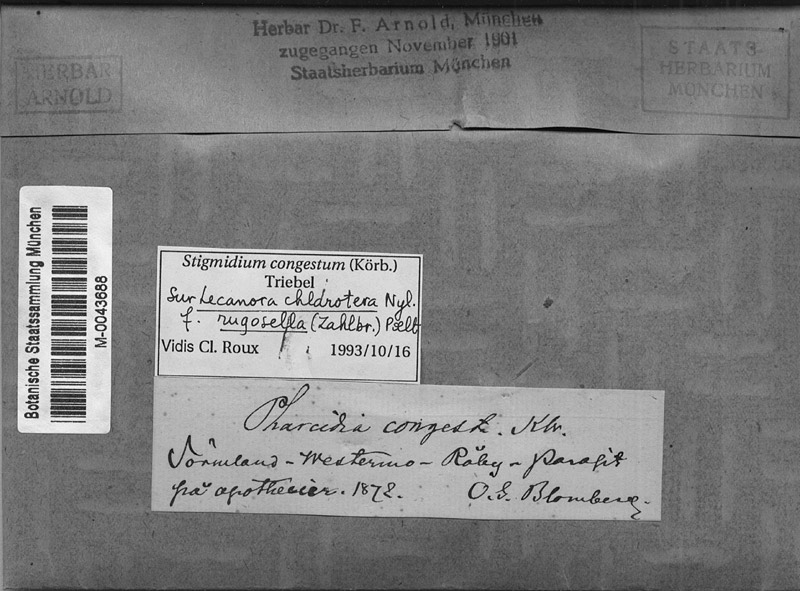 Herbar Dr. F. Arnold, München
zugegangen November 1901
Staatsherbarium München
HERBAR
ARNOLD
STAATS-
HERBARIUM
MÜNCHEN
Botanische Staatssammlung München
M-0043688
Stigmidium congestum (Körb.)
Triebel
Sur Lecanora chlarotera Nyl.
f. rugosella (Zahlbr.) Poelt
Vidis Cl. Roux 1993/10/16
Pharcidia congest. Kbr.
Sörmland - Westermo - Räby - parasit
på apothecier. 1872. O. G. Blomberg.